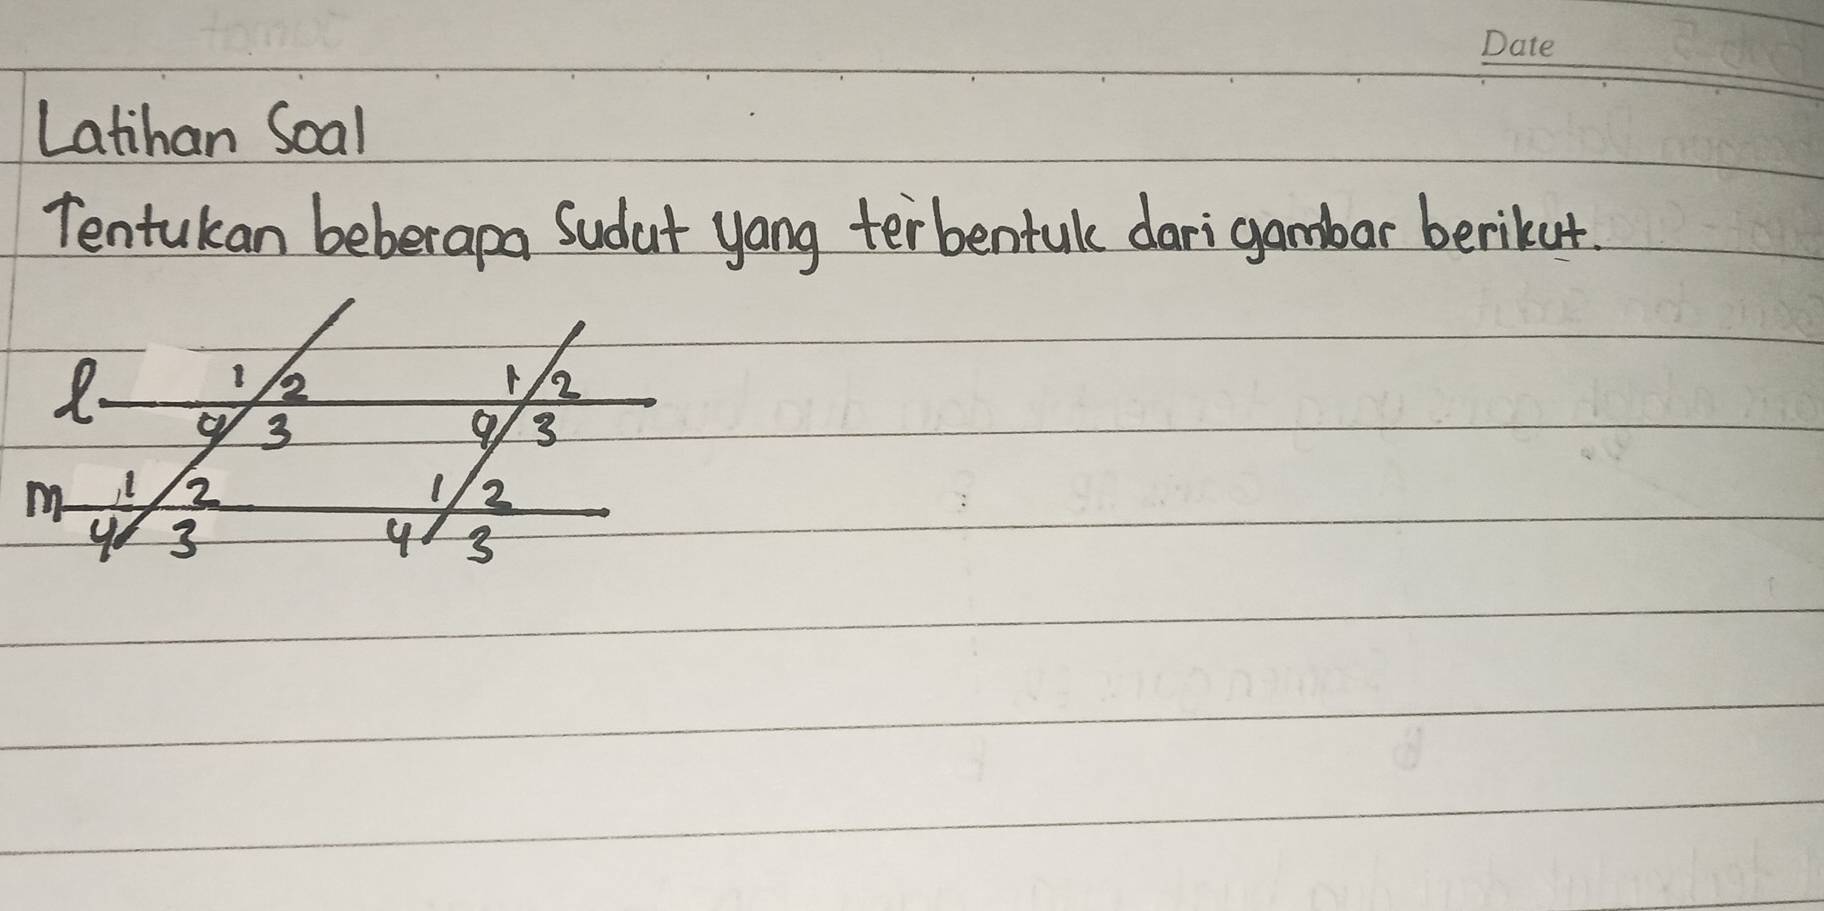 Date
Latihan Soal
Tentukan beberapa Sudut yang terbentuk dari gambar berikut.
1 2 1 2
l
4 3 4 3
1 2 1 2
m
4 3 4 3